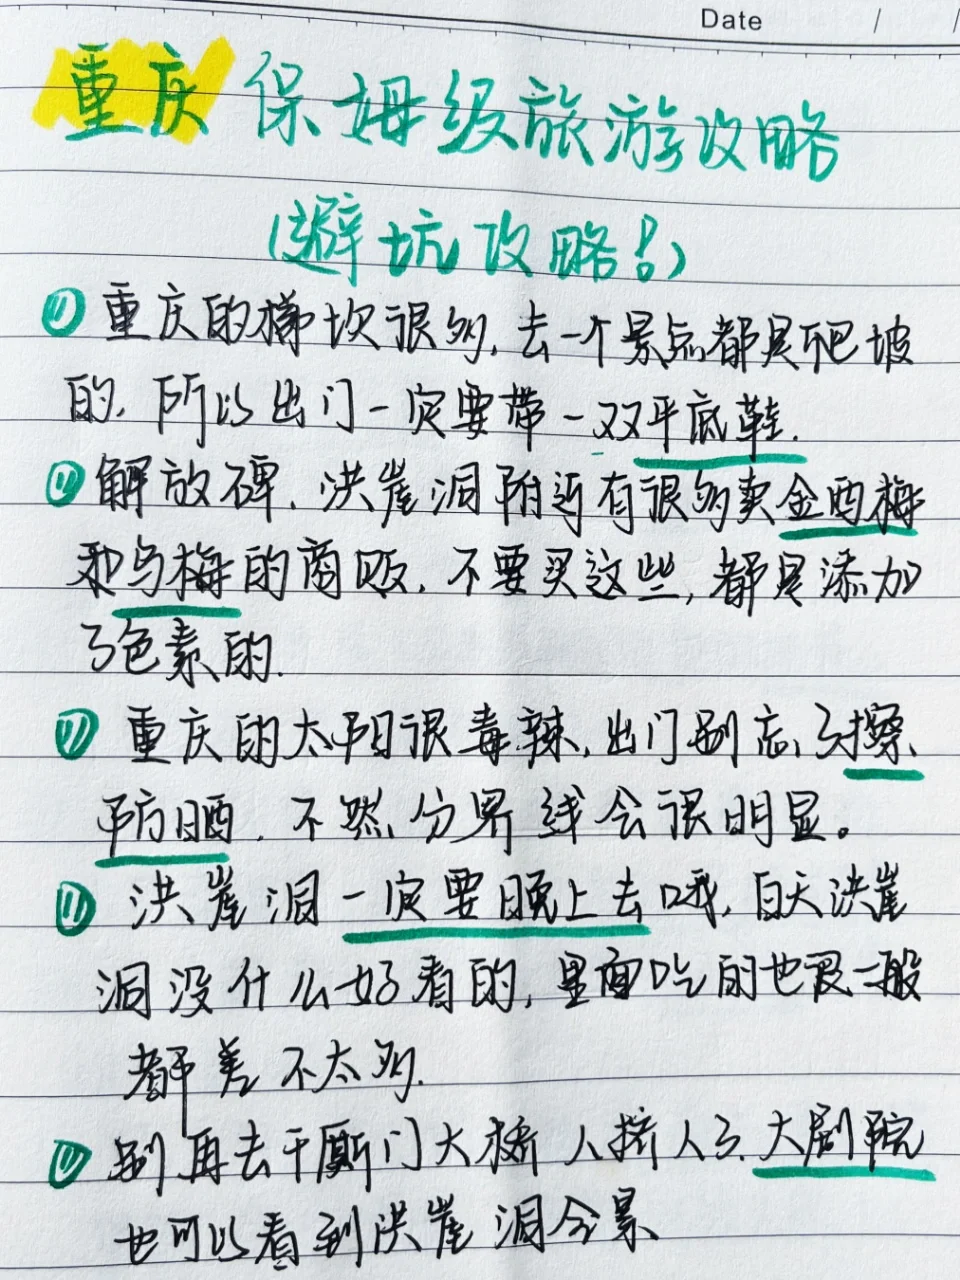 Date / /
重庆保姆级旅游攻略
(避坑攻略!)
重庆的梯坎很多,去一个景点都是爬坡
的,所以出门一定要带一双平底鞋.
解放碑、洪崖洞附近有很多卖金西梅
和乌梅的商贩,不要买这些,都是添加
了色素的.
重庆的太阳很毒辣,出门别忘了擦
防晒,不然分界线会很明显。
洪崖洞一定要晚上去哦,白天洪崖
洞没什么好看的,里面吃的也很一般
都差不太多.
别再去千厮门大桥人挤人了、大剧院
也可以看到洪崖洞全景